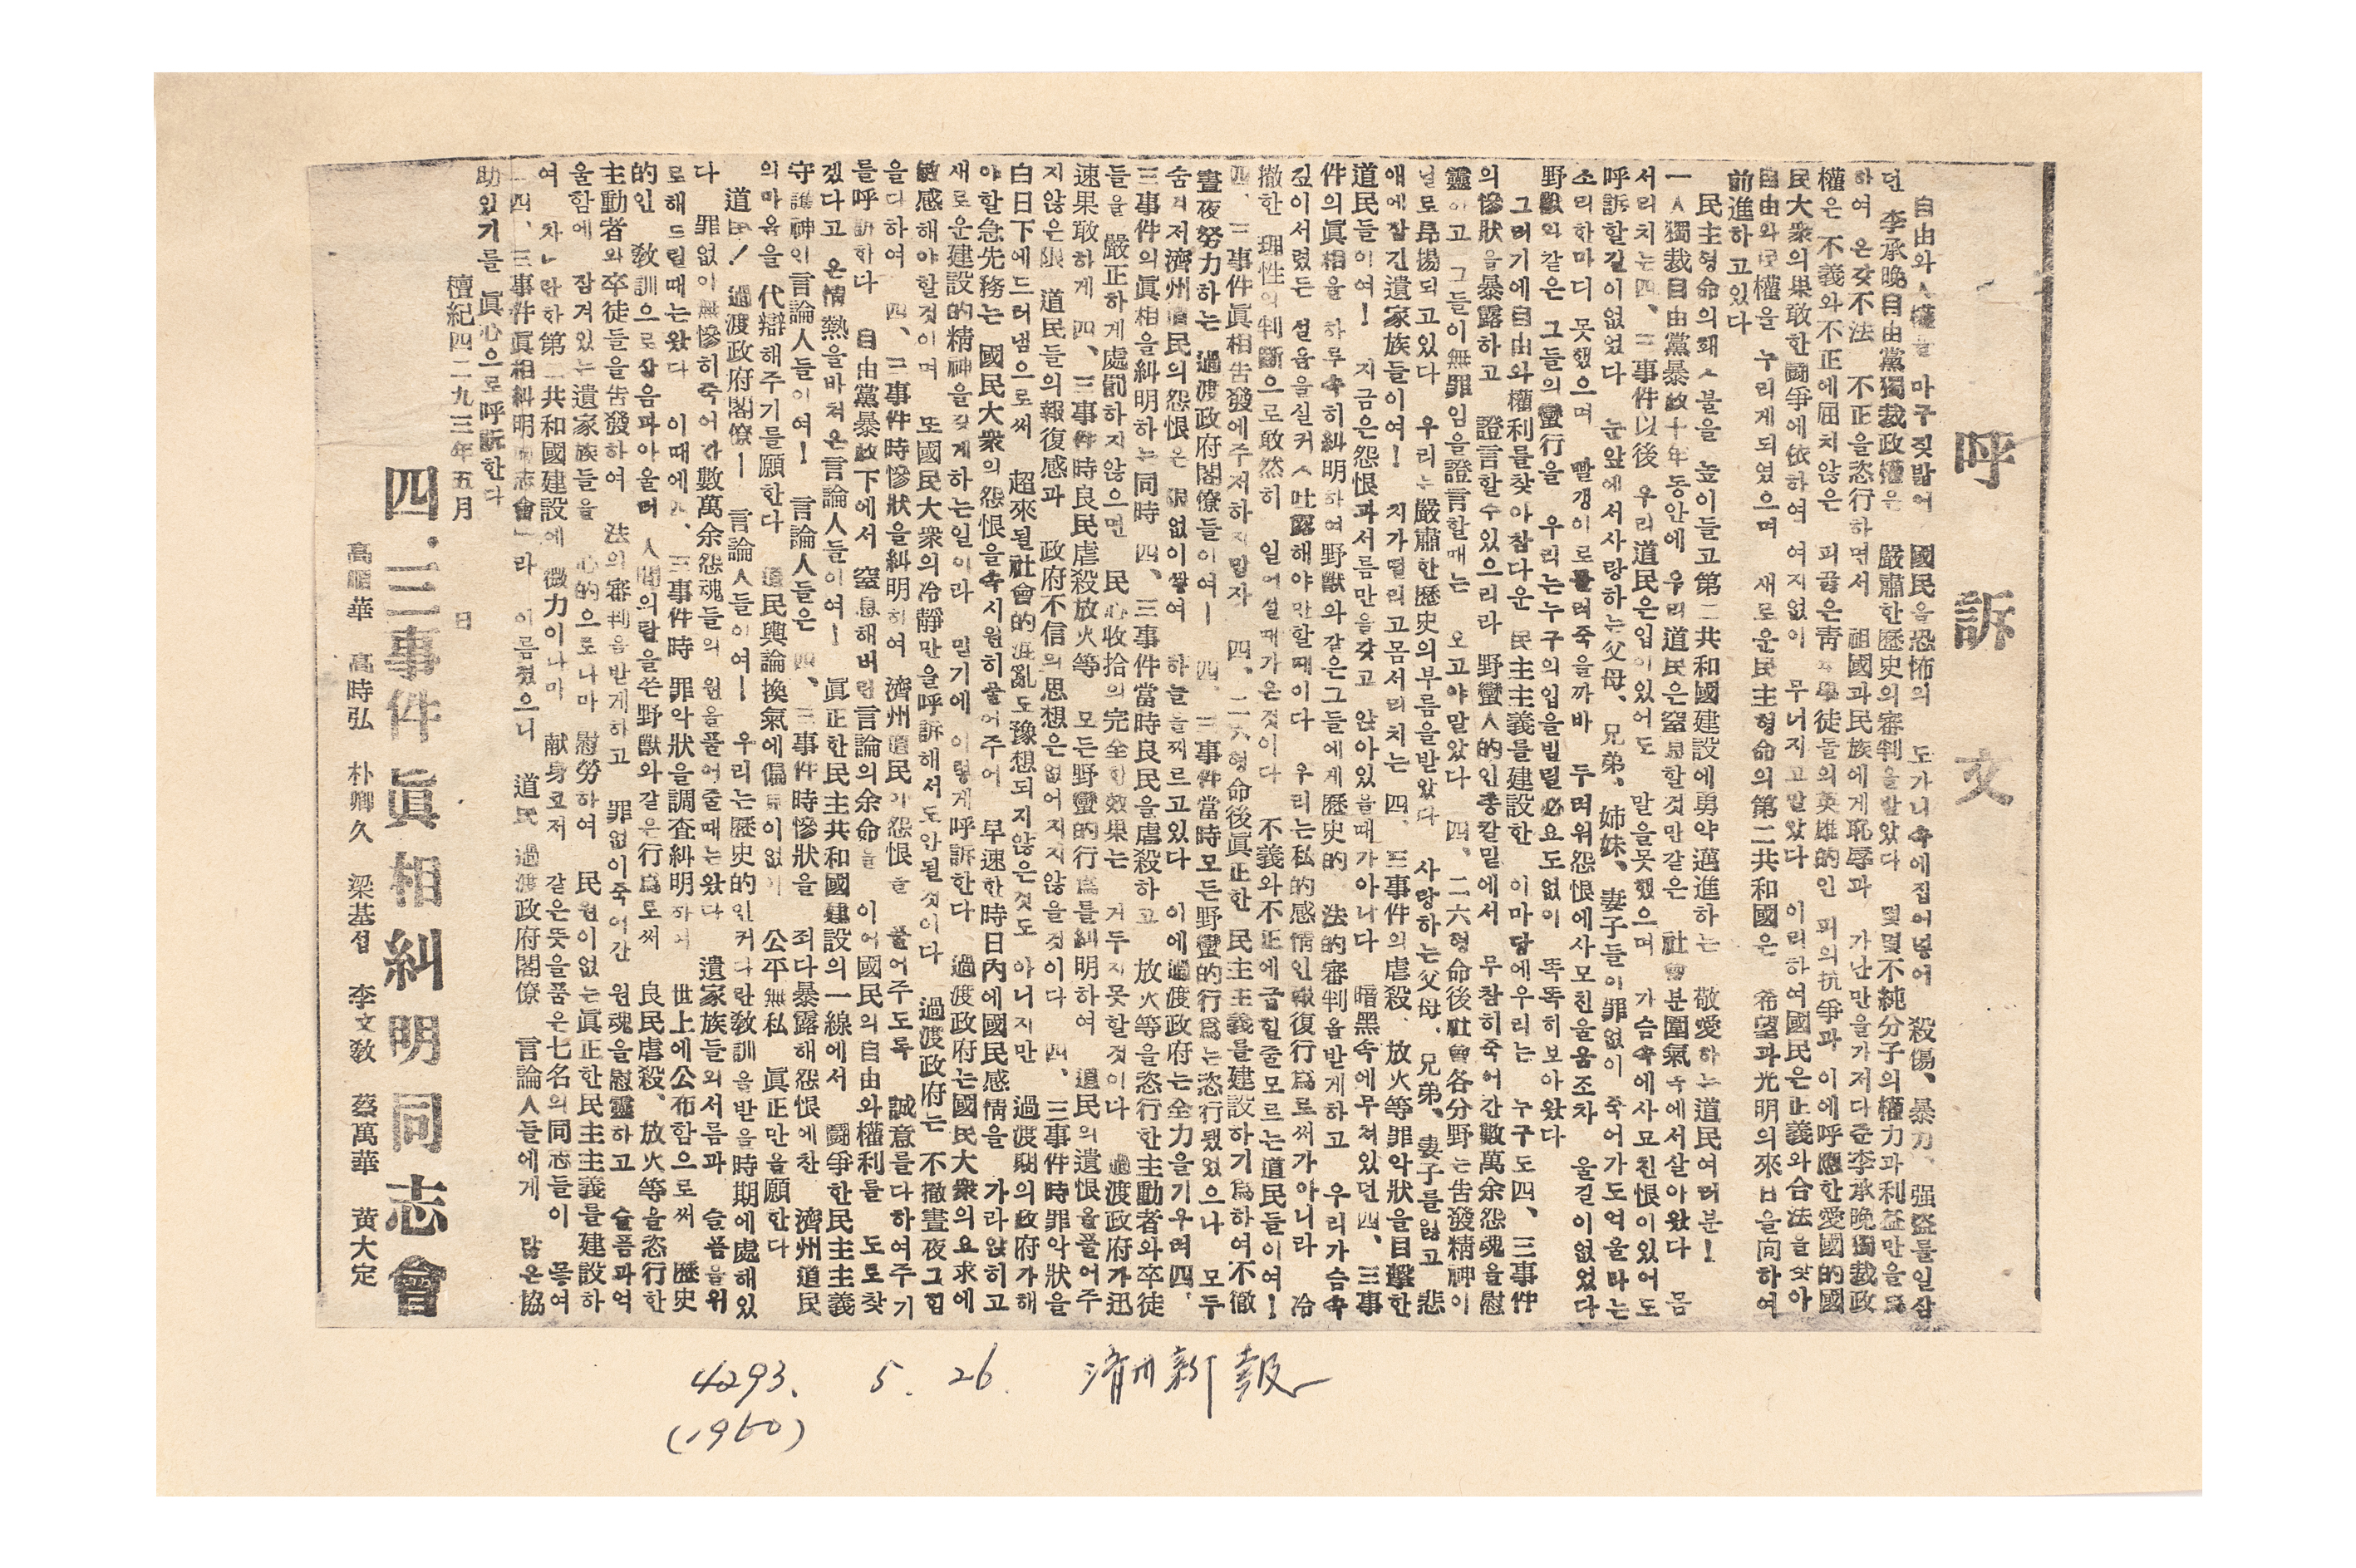 呼訴文
自由와人權을 마구짓밟어 國民을恐怖의 도가니속에집어넣어 殺傷、暴力、强盜를일삼
던 李承晩自由黨獨裁政權은 嚴肅한歷史의審判을받았다 몇몇不純分子의權力과利益만을
하여 온갖不法 不正을恣行하면서 祖國과民族에게恥辱과 가난만을가저다준李承晩獨裁政
權은 不義와不正에屈치않은 피끓은靑年學徒들의英雄的인 피의抗爭과 이에呼應한愛國的國
民大衆의果敢한鬪爭에依하여 여지없이 무너지고말았다 이리하여國民은正義와合法을찾아
自由와民權을 누리게되였으며 새로운民主형命의第二共和國은 希望과光明의來日을向하여
前進하고있다
民主형命의홰ㅅ불을 높이들고第二共和國建設에勇약邁進하는 敬愛하는道民여러분!
一人獨裁自由黨暴政十年동안에 우리道民은窒息할것만같은 社會분圍氣속에서살아왔다 몸
서리치는四、三事件以後 우리道民은입이있어도 말을못했으며 가슴속에사모친恨이있어도
呼訴할길이없었다 눈앞에서사랑하는父母、兄弟、姉妹、妻子들이罪없이 죽어가도억울타는
소리한마디 못했으며 빨갱이로몰려죽을까바 두려워怨恨에사모친울음조차 울길이없었다
野獸와같은 그들의蠻行을 우리는누구의입을빌릴必요도없이 똑똑히보아왔다
그러기에自由와權利를찾아참다운 民主主義를建設한 이마당에우리는 누구도四、三事件
의慘狀을暴露하고 證言할수있으리라 野蠻人的인총칼밑에서 무참히죽어간數萬余怨魂을慰
靈하고 그들이無罪임을證言할때는 오고야말았다 四、二六형命後社會各分野는告發精神이
날로昻揚되고있다 우리는嚴肅한歷史의부름을받았다 사랑하는父母、兄弟、妻子를잃고 悲
애에잠긴遺家族들이여! 치가떨리고몸서리치는 四、三事件의虐殺、放火等罪악狀을目擊한
道民들이여! 지금은怨恨과서름만을갖고 앉아있을때가아니다 暗黑속에무쳐있던四、三事
件의眞相을 하루속히糾明하여野獸와같은그들에게歷史的 法的審判을받게하고 우리가슴속
깊이서렸든 설음을실커ㅅ吐露해야만할때이다 우리는私的感情인報復行爲로써가아니라 冷
撤한 理性의判斷으로敢然히 일어설때가온것이다 不義와不正에굽힐줄모르는道民들이여!
四、三事件眞相告發에주저하지말자 四、二六형命後眞正한 民主主義를建設하기爲하여不徹
晝夜努力하는 過渡政府閣僚들이여! 四、三事件當時모든野蠻的行爲는恣行됐었으나 모두
숨겨저濟州道民의怨恨은 限없이쌓여 하늘을찌르고있다 이에過渡政府는全力을기우려 四、
三事件의眞相을糾明하는同時 四、三事件當時良民을虐殺하고 放火等을恣行한主動者와卒徒
들을 嚴正하게處罰하지않으면 民心收拾의完全한效果는 거두지못할것이다 過渡政府가迅
速果敢하게 四、三事件時良民虐殺放火等 모든野蠻的行爲를糾明하여 道民의遺恨을풀어주
지않은限 道民들의報復感과 政府不信의思想은없어지지않을것이다 四、三事件時罪악狀을
白日下에드러냄으로써 超來될社會的混亂도豫想되지않은것도 아니지만 過渡期의政府가해
야할急先務는 國民大衆의怨恨을속시원히풀어주어 早速한時日內에國民感情을 가라앉히고
새로운建設的精神을갖게하는일이라 믿기에 이렇게呼訴한다 過渡政府는國民大衆의요求에
敏感해야할것이며 또國民大衆의冷靜만을呼訴해서도안될것이다 過渡政府는 不撤晝夜그힘
을다하여 四、三事件時慘狀을糾明하여 濟州道民의怨恨을 풀어주도록 誠意를다하여주기
를呼訴한다 自由黨暴政下에서 窒息해버린言論의余命을 이어國民의自由와權利를 도로찾
겠다고 온情熱을바쳐온言論人들이여! 眞正한民主共和國建設의一線에서 鬪爭한民主主義
守護神인言論人들이여! 言論人들은 四、三事件時慘狀을 죄다暴露해怨恨에찬 濟州道民
의마음을代辯해주기를願한다 道民輿論換氣에偏뜨이없이 公平無私 眞正만을願한다
道民! 過渡政府閣僚! 言論人들이여! 우리는歷史的인커다란敎訓을받을時期에處해있
다 罪없이無慘히죽어간數萬余怨魂들의 원을풀어줄때는왔다 遺家族들의서름과 슬픔을위
로해드릴때는왔다 이때에 四、三事件時 罪악狀을調査糾明하여 世上에公布함으로써 歷史
的인 敎訓으로삼음과아울러 人間의탈을쓴野獸와같은行爲로써 良民虐殺、放火等을恣行한
主動者와卒徒들을告發하여 法의審判을받게하고 罪없이죽어간 원魂을慰靈하고 슬픔과억
울함에 잠겨있는遺家族들을 心的으로나마 慰勞하여 民원이없는眞正한民主主義를建設하
여 차ㄴ란한第二共和國建設에 微力이나마 献身코저 같은뜻을품은七名의同志들이 뫃여
「四、三事件眞相糾明同志會」라 이름젔으니 道民 過渡政府閣僚 言論人들에게 많은協
助있기를 眞心으로呼訴한다
檀紀四二九三年五月 日
四·三事件眞相糾明同志會
高順華 高時弘 朴卿久 梁基섭 李文敎 蔡萬華 黃大定
4293. 5. 26. 濟州新報
(1960)